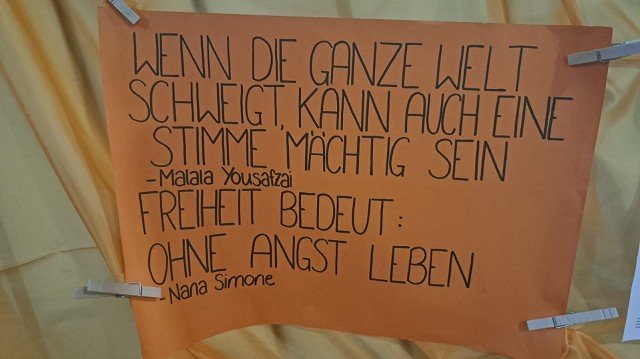 WENN DIE GANZE WELT
SCHWEIGT, KANN AUCH EINE
STIMME MÄCHTIG SEIN
-Malala Yousafzai
FREIHEIT BEDEUT:
OHNE ANGST LEBEN
-Nana Simone